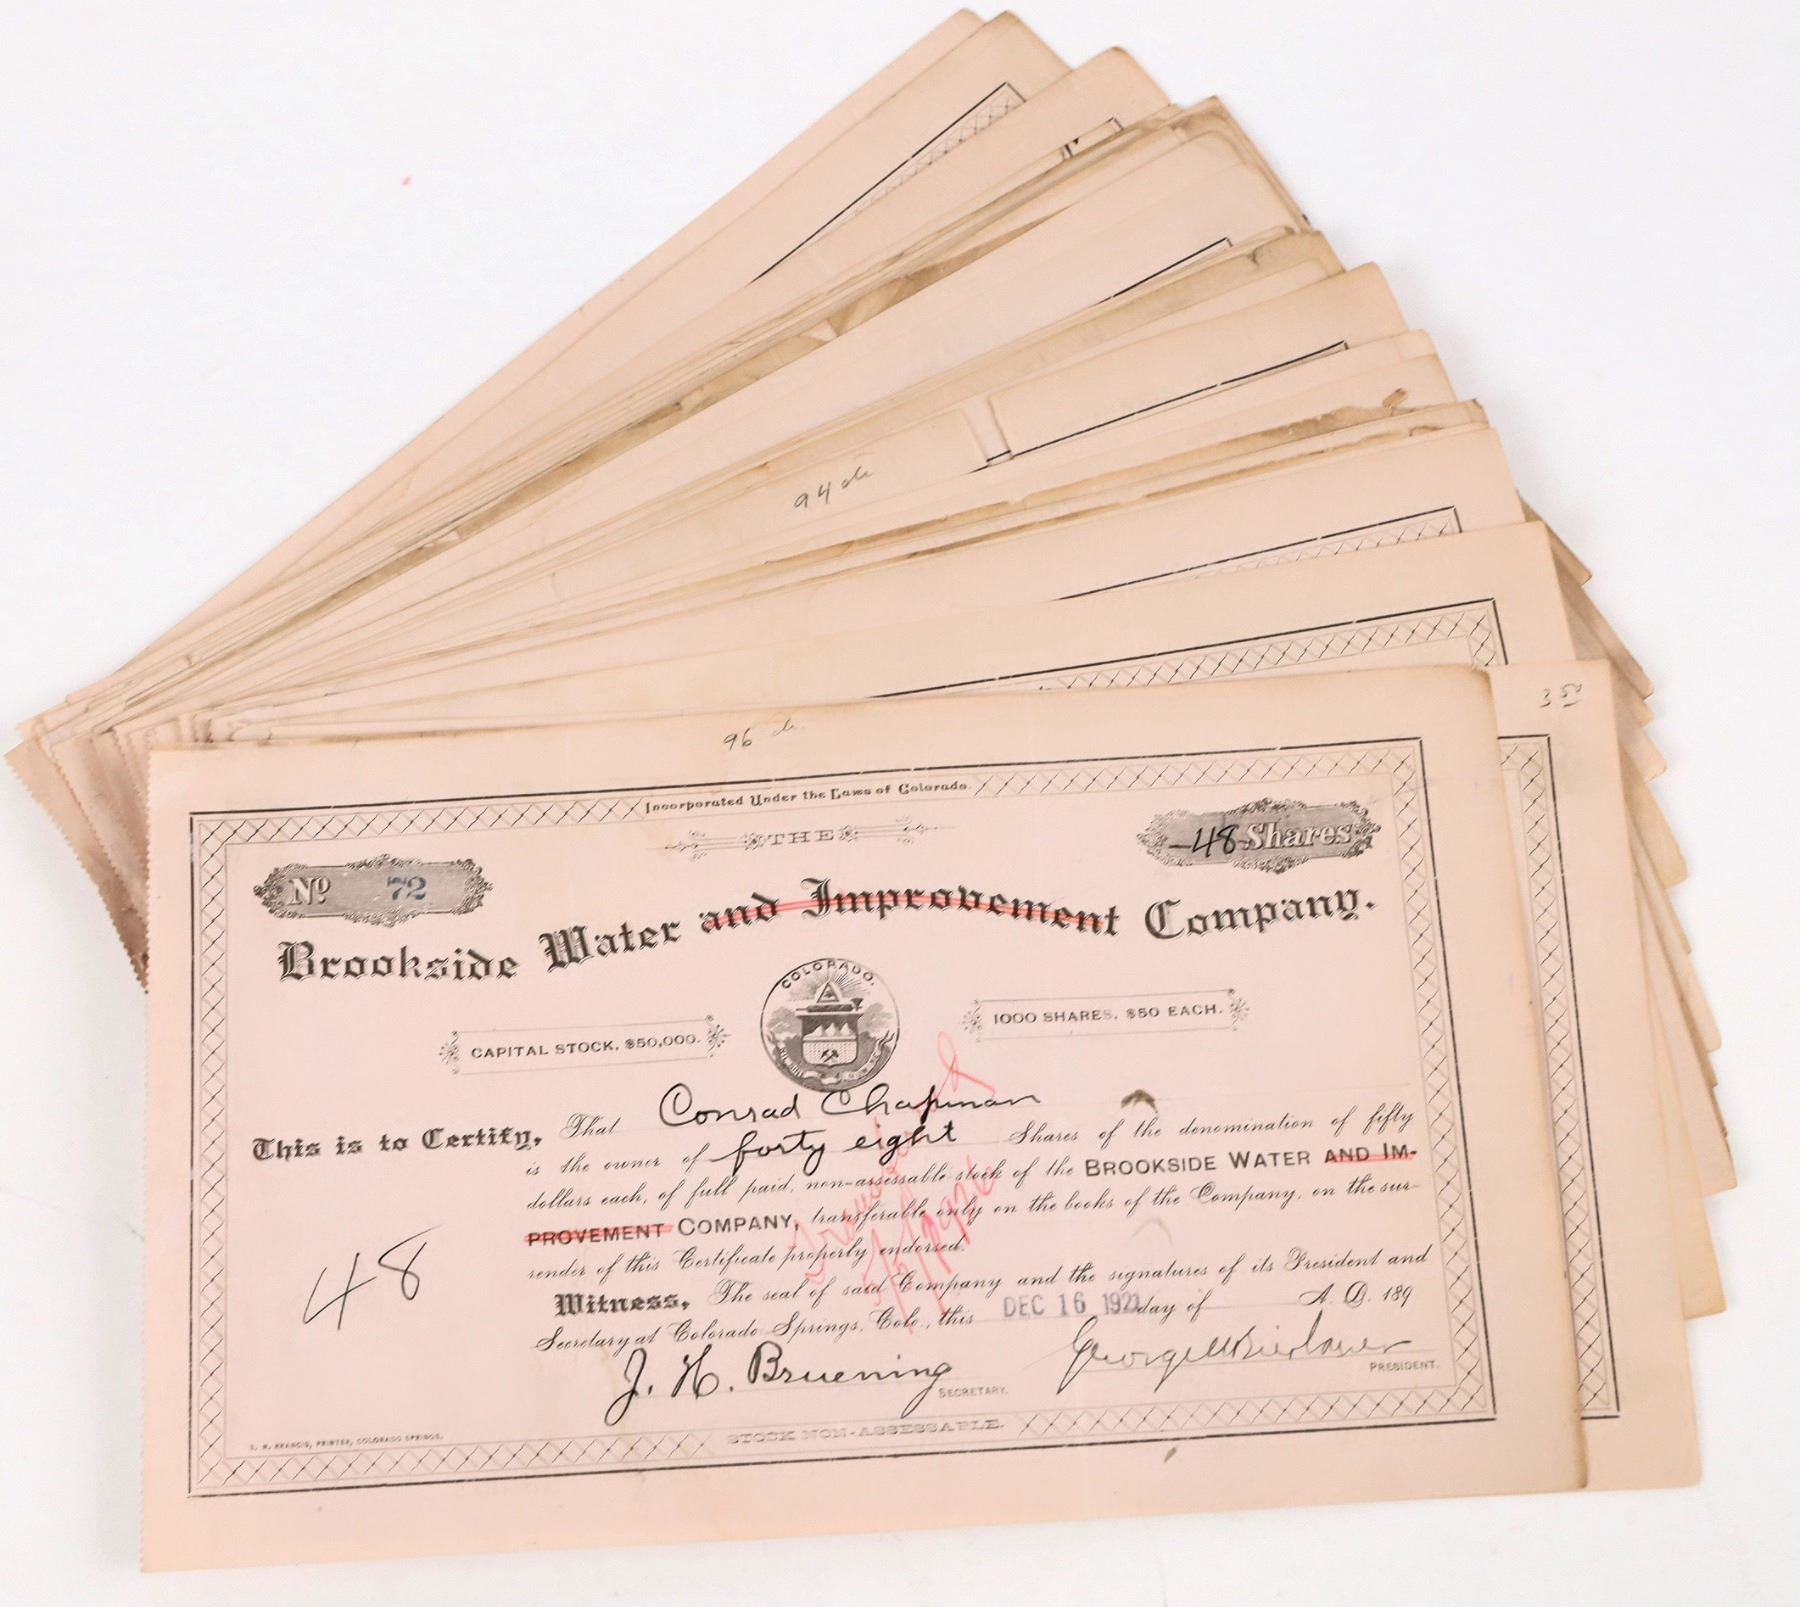 94
3 50
96
Incorporated Under the Laws of Colorado.
THE
No 72
48 Shares
Brookside Water and Improvement Company.
COLORADO.
CAPITAL STOCK, $50,000.
1000 SHARES, $50 EACH.
This is to Certify, That Conrad Chapman
is the owner of forty eight Shares of the denomination of fifty
dollars each, of full paid, non-assessable stock of the BROOKSIDE WATER AND IM-
PROVEMENT COMPANY, transferable only on the books of the Company, on the sur-
render of this Certificate properly endorsed.
48
Witness, The seal of said Company and the signatures of its President and
Secretary at Colorado Springs, Colo., this DEC 16 1921 day of A. D. 189
J. H. Bruening
SECRETARY.
PRESIDENT.
PRINTER, COLORADO SPRINGS.
STOCK NON-ASSESSABLE.